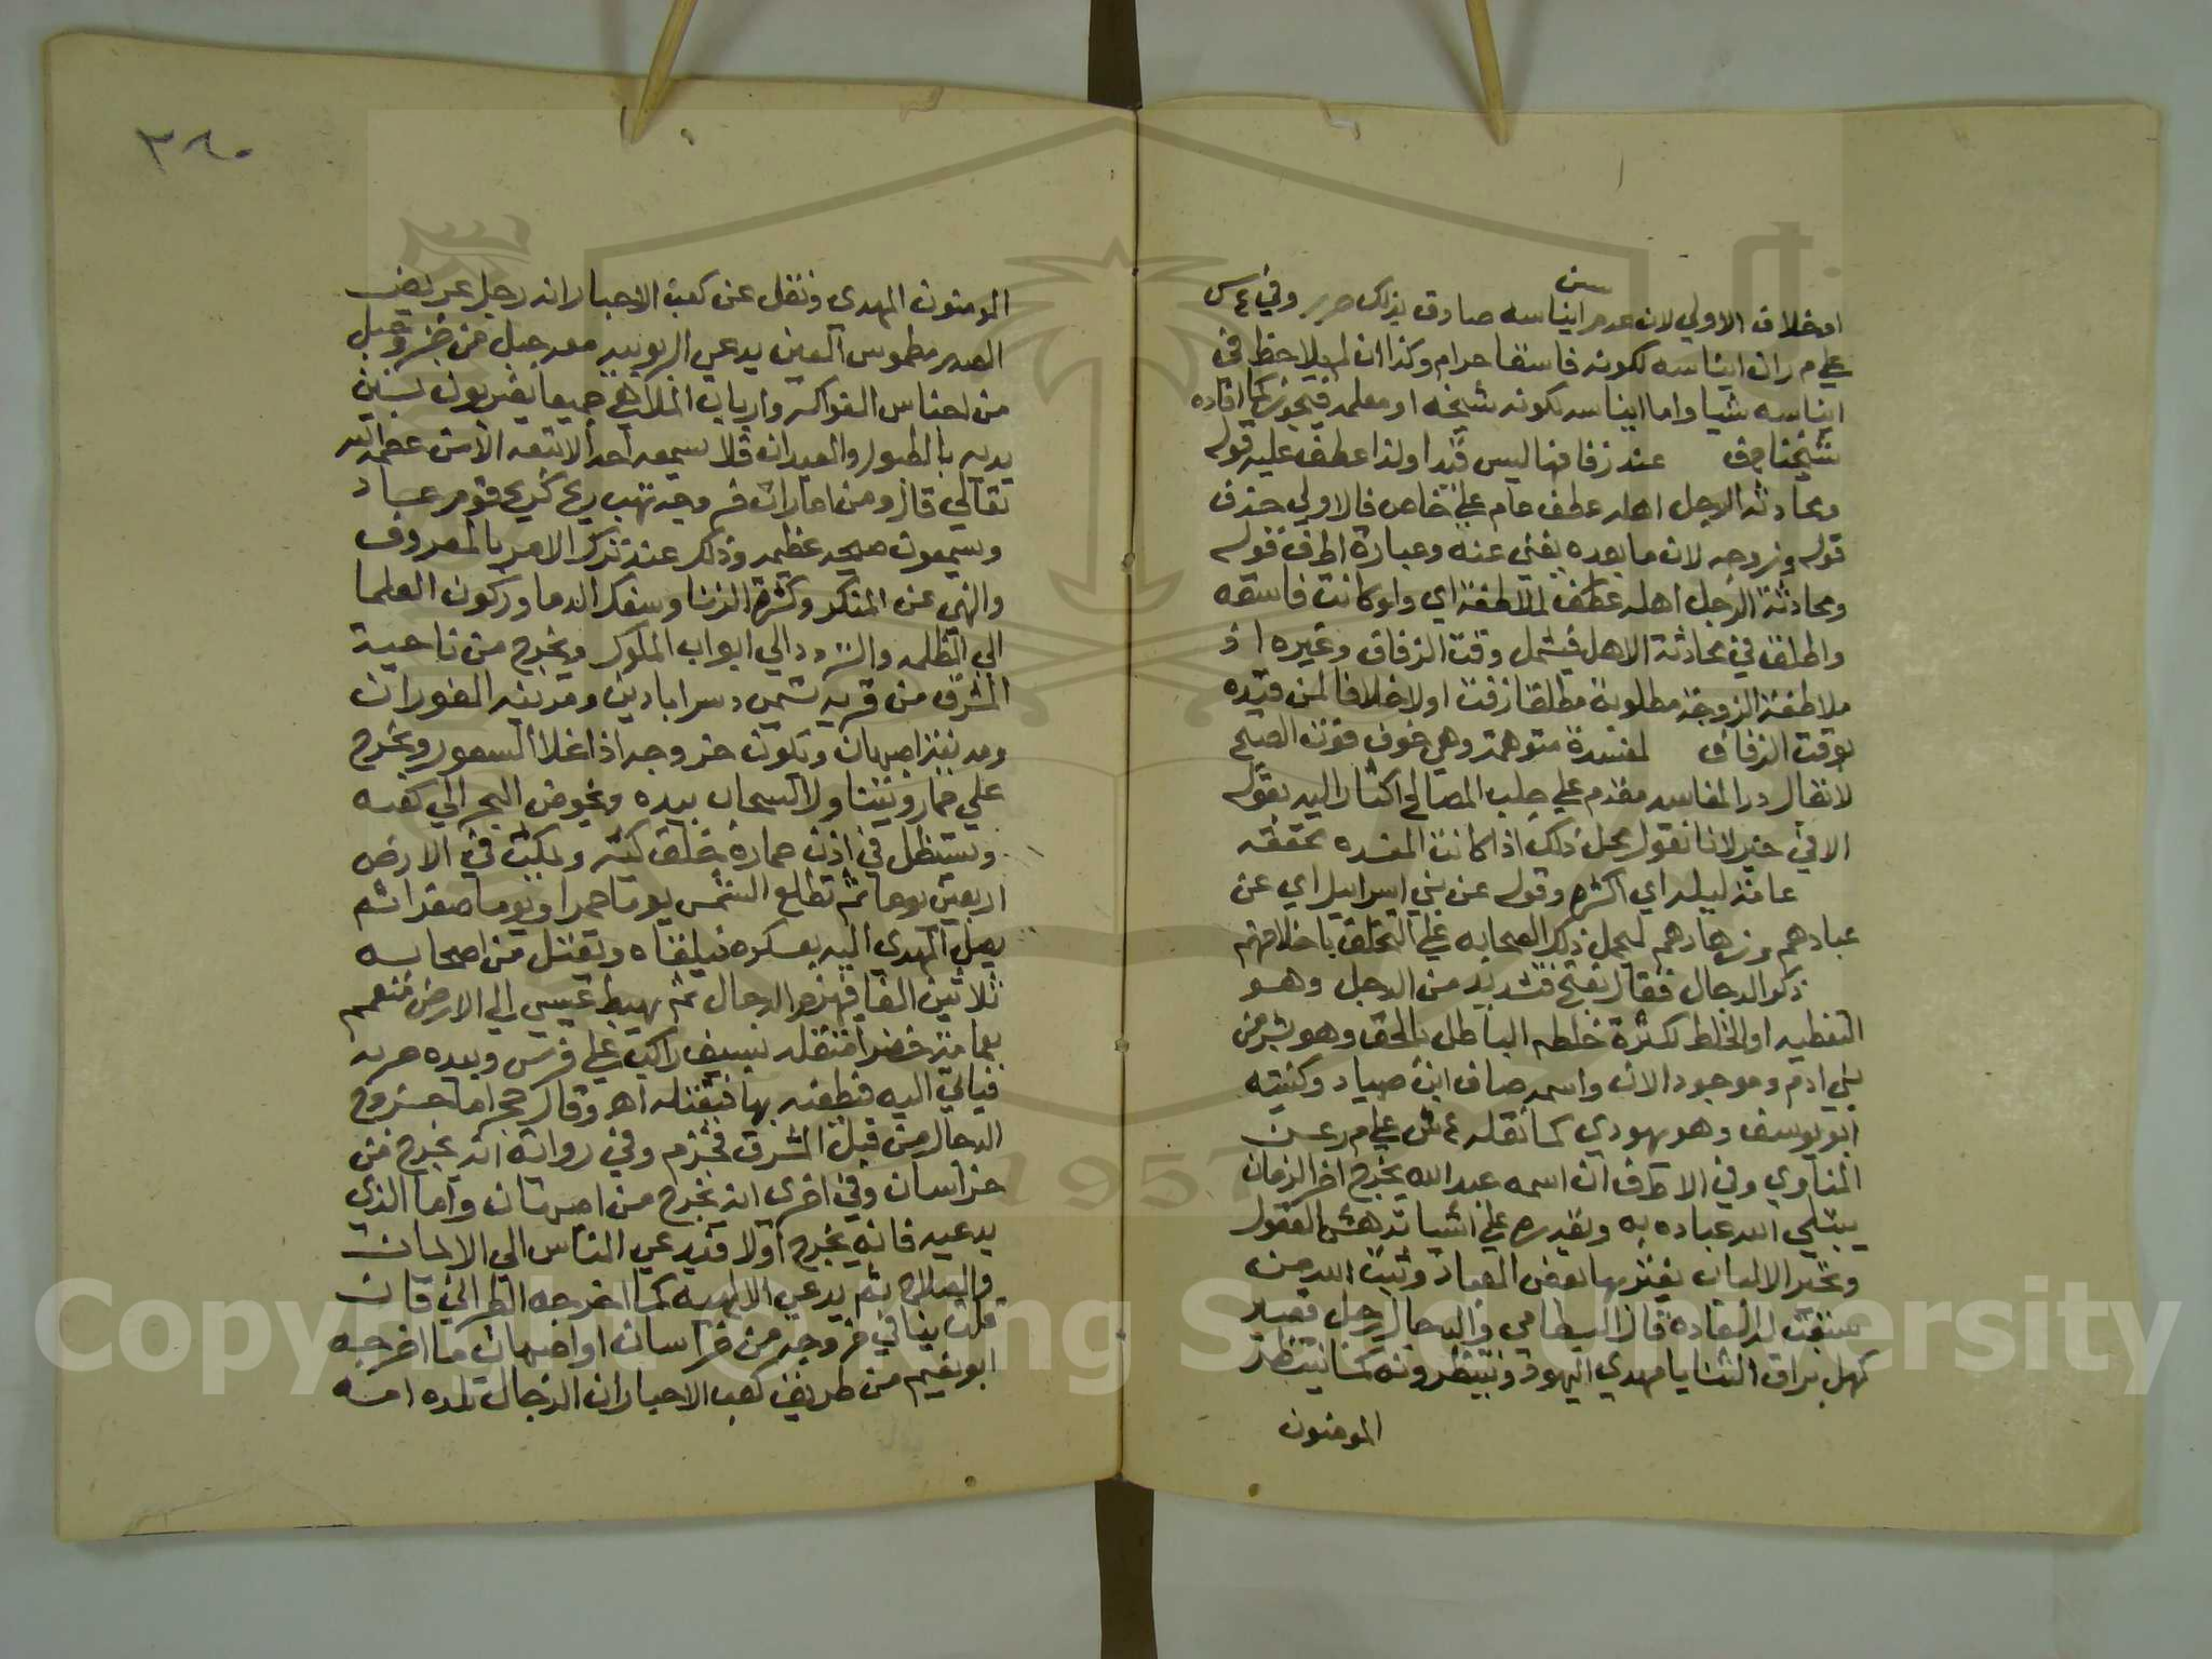 سن
اوخلاف الاولي لان عدم ايناسه صادق بذلك حرر وفي ع س
علي م ر ان ايناسه لكونه فاسقا حرام وكذا ان لم يلاحظ في
ايناسه شيا واما ايناسه لكونه شيخه او معلمه فيجوز كما افاده
شيخنا حف عند زفافها ليس قيدا ولذا عطف عليه قوله
ومحادثة الرجل اهله عطف عام علي خاص فالاولي حذف
قوله وزوجه لان ما بعده يغني عنه وعبارة اط ف قوله
ومحادثة الرجل اهله عطف لملاطفة اي ولو كانت فاسقه
واطلق في محادثة الاهل فيشمل وقت الزفاف وغيره اذ
ملاطفة الزوجة مطلوبة مطلقا زفت اولا خلافا لمن قيده
بوقت الزفاف لمفسدة متوهمة وهي خوف فوت الصبح
لا يقال درا المفاسد مقدم علي جلب المصالح اشار اليه بقوله
الا في خير لانا نقول محل ذلك اذا كانت المفسده محققه
عامة ليله اي اكثره وقوله عن بني اسراييل اي عن
عبادهم وزهادهم ليحمل ذلك الصحابه علي التخلق باخلاقهم
ذكر الدجال فعال بفتح فتشديد من الدجل وهو
التغطيه او الخلط لكثرة خلطه الباطل بالحق وهو بشر من
بني ادم وموجود الان واسمه صاف ابن صياد وكنيته
ابو يوسف وهو يهودي كما نقله ع ش علي م ر عن
المناوي وفي الاط ف ان اسمه عبد الله يخرج اخر الزمان
يبتلي الله عباده به ويقدره علي اشيا تدهش العقول
وتحير الالباب يغتر بها بعض العباد ويثبت الله من
سبقت له السعاده قال البسطامي والدجال رجل قصير
كهل براق الثنايا مهدي اليهود وينتظرونه كما ينتظر
المومنون
٣٨٠
المومنون المهدي ونقل عن كعب الاحبار انه رجل عريض
الصدر مطموس العين يدعي الربوبيه معه جبل من خبز وجبل
من اجناس الفواكه وارباب الملاهي جميعا يضربون بين
يديه بالطبول والعيدان فلا يسمعه احد الا تبعه الا من عصمه الله
تعالي قال ومن امارات خروجه تهب ريح كريح قوم عاد
ويسمعون صيحه عظيمه وذلك عند ترك الامر بالمعروف
والنهي عن المنكر وكثرة الزنا وسفك الدما وركون العلما
الي الظلمه والتردد الي ابواب الملوك ويخرج من ناحية
المشرق من قريه تسمي دسر ابادين ومدينه الهوران
ومدينة اصبهان ويكون خروجه اذا غلا السعر ويخرج
علي حمار ويتناول السحاب بيده ويخوض البحر الي كعبه
ويستظل في اذن حماره خلق كثير ويمكث في الارض
اربعين يوما ثم تطلع الشمس يوما حمرا ويوما صفرا ثم
يصل المهدي اليه بعسكره فيلقاه ويقتل من اصحابه
ثلاثين الفا فيهزم الدجال ثم يهبط عيسي الي الارض متعمم
بعمامة خضرا متقلد بسيف راكب علي فرس وبيده حربه
فياتي اليه فيطعنه بها فيقتله اهـ وقال حج اما خروج
الدجال من قبل المشرق فجزم وفي رواية انه يخرج من
خراسان وفي اخري انه يخرج من اصبهان واما الذي
يدعيه فانه يخرج اولا فيدعي الناس الي الايمان
والصلاح ثم يدعي الالهيه كما اخرجه الطبراني فان
قلت ينافي خروجه من خراسان او اصبهان ما اخرجه
ابو نعيم من طريق كعب الاحبار ان الدجال تلده امه
Copyright © King Saud University
1957